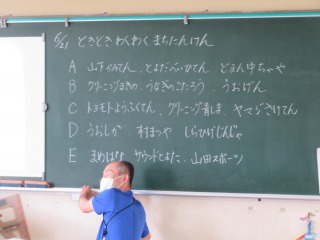 6/21 どきどきわくわく まちたんけん
A 山下かみてん、とよだ てん ちゃや
B クリーニングまきの、うなぎのこたろう、うおげん
C トヨモトようふくてん、クリーニング青しま ヤマジさけてん
D うおしか 村まつや しらひげじんじゃ
E まめはな サウンドとよた、山田スポーツ